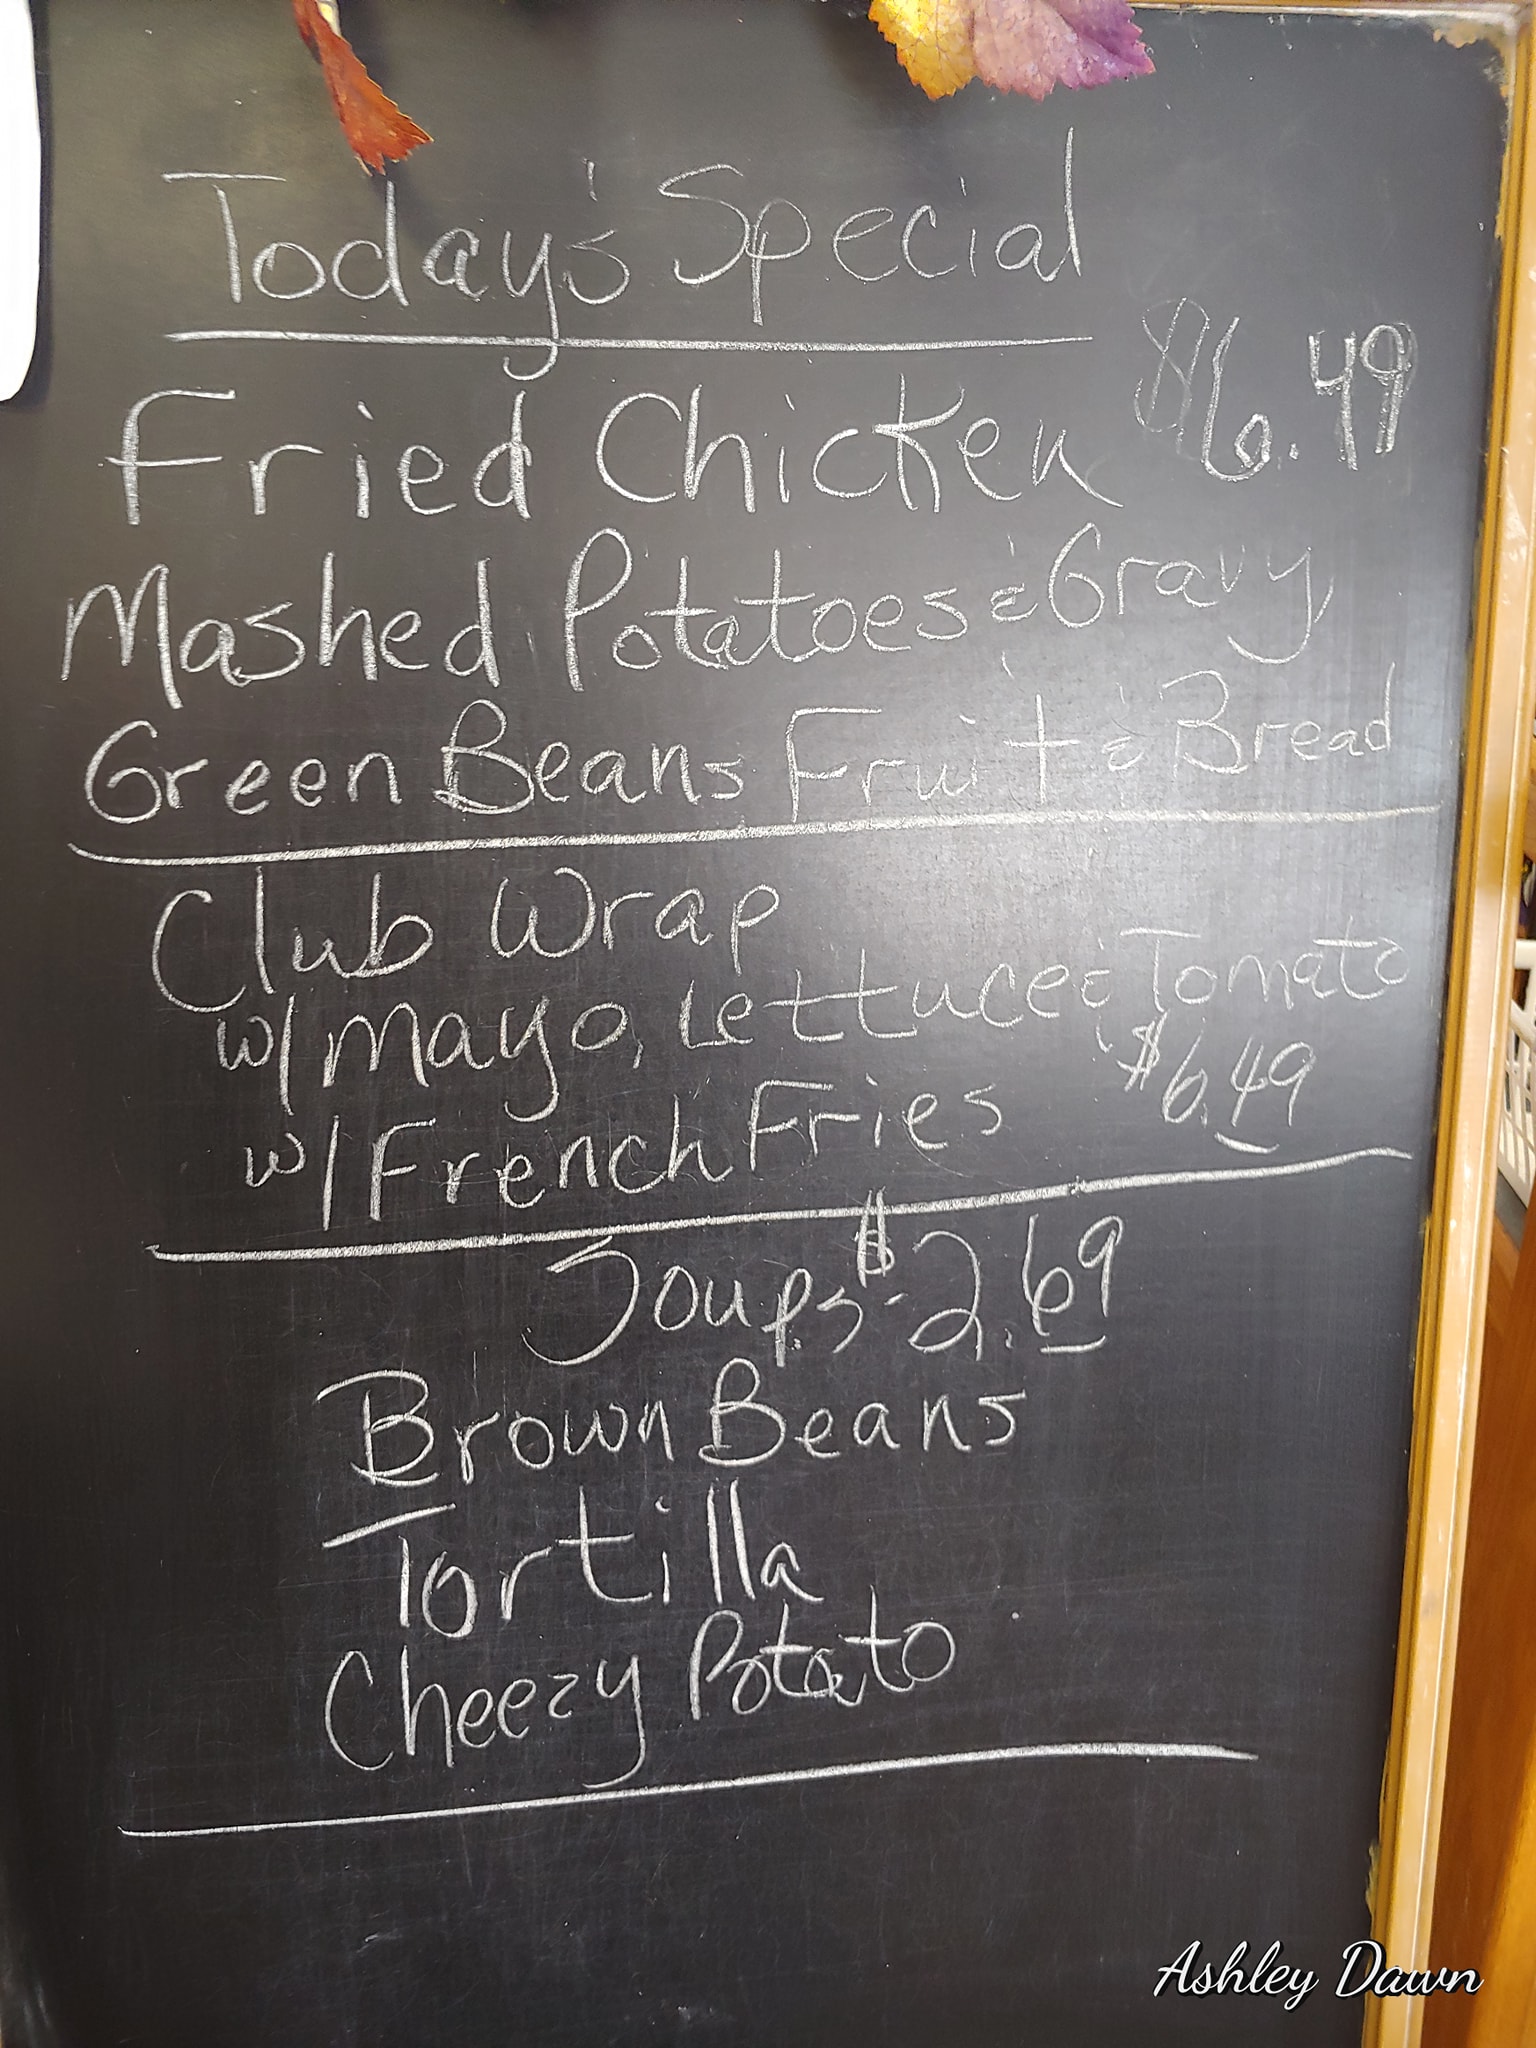 Today's Special
Fried Chicken $6.49
Mashed Potatoes & Gravy
Green Beans Fruit & Bread
Club Wrap
w/ Mayo, Lettuce & Tomato
w/ French Fries $6.49
Soups $2.69
Brown Beans
Tortilla
Cheezy Potato
Ashley Dawn